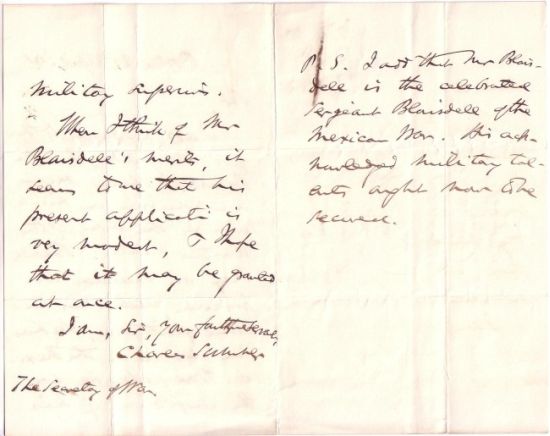 military superiors.
When I think of Mr
Blaisdell's merits, it
seems to me that his
present applicati is
very modest, & I hope
that it may be granted
at once.
I am, Sir, Your faithful serv,
Charles Sumner
The Secretary of War
P. S. I add that Mr Blais-
dell is the celebrated
Sergeant Blaisdell of the
Mexican War. His ack-
nowledged military tal-
ents ought now to be
secured.